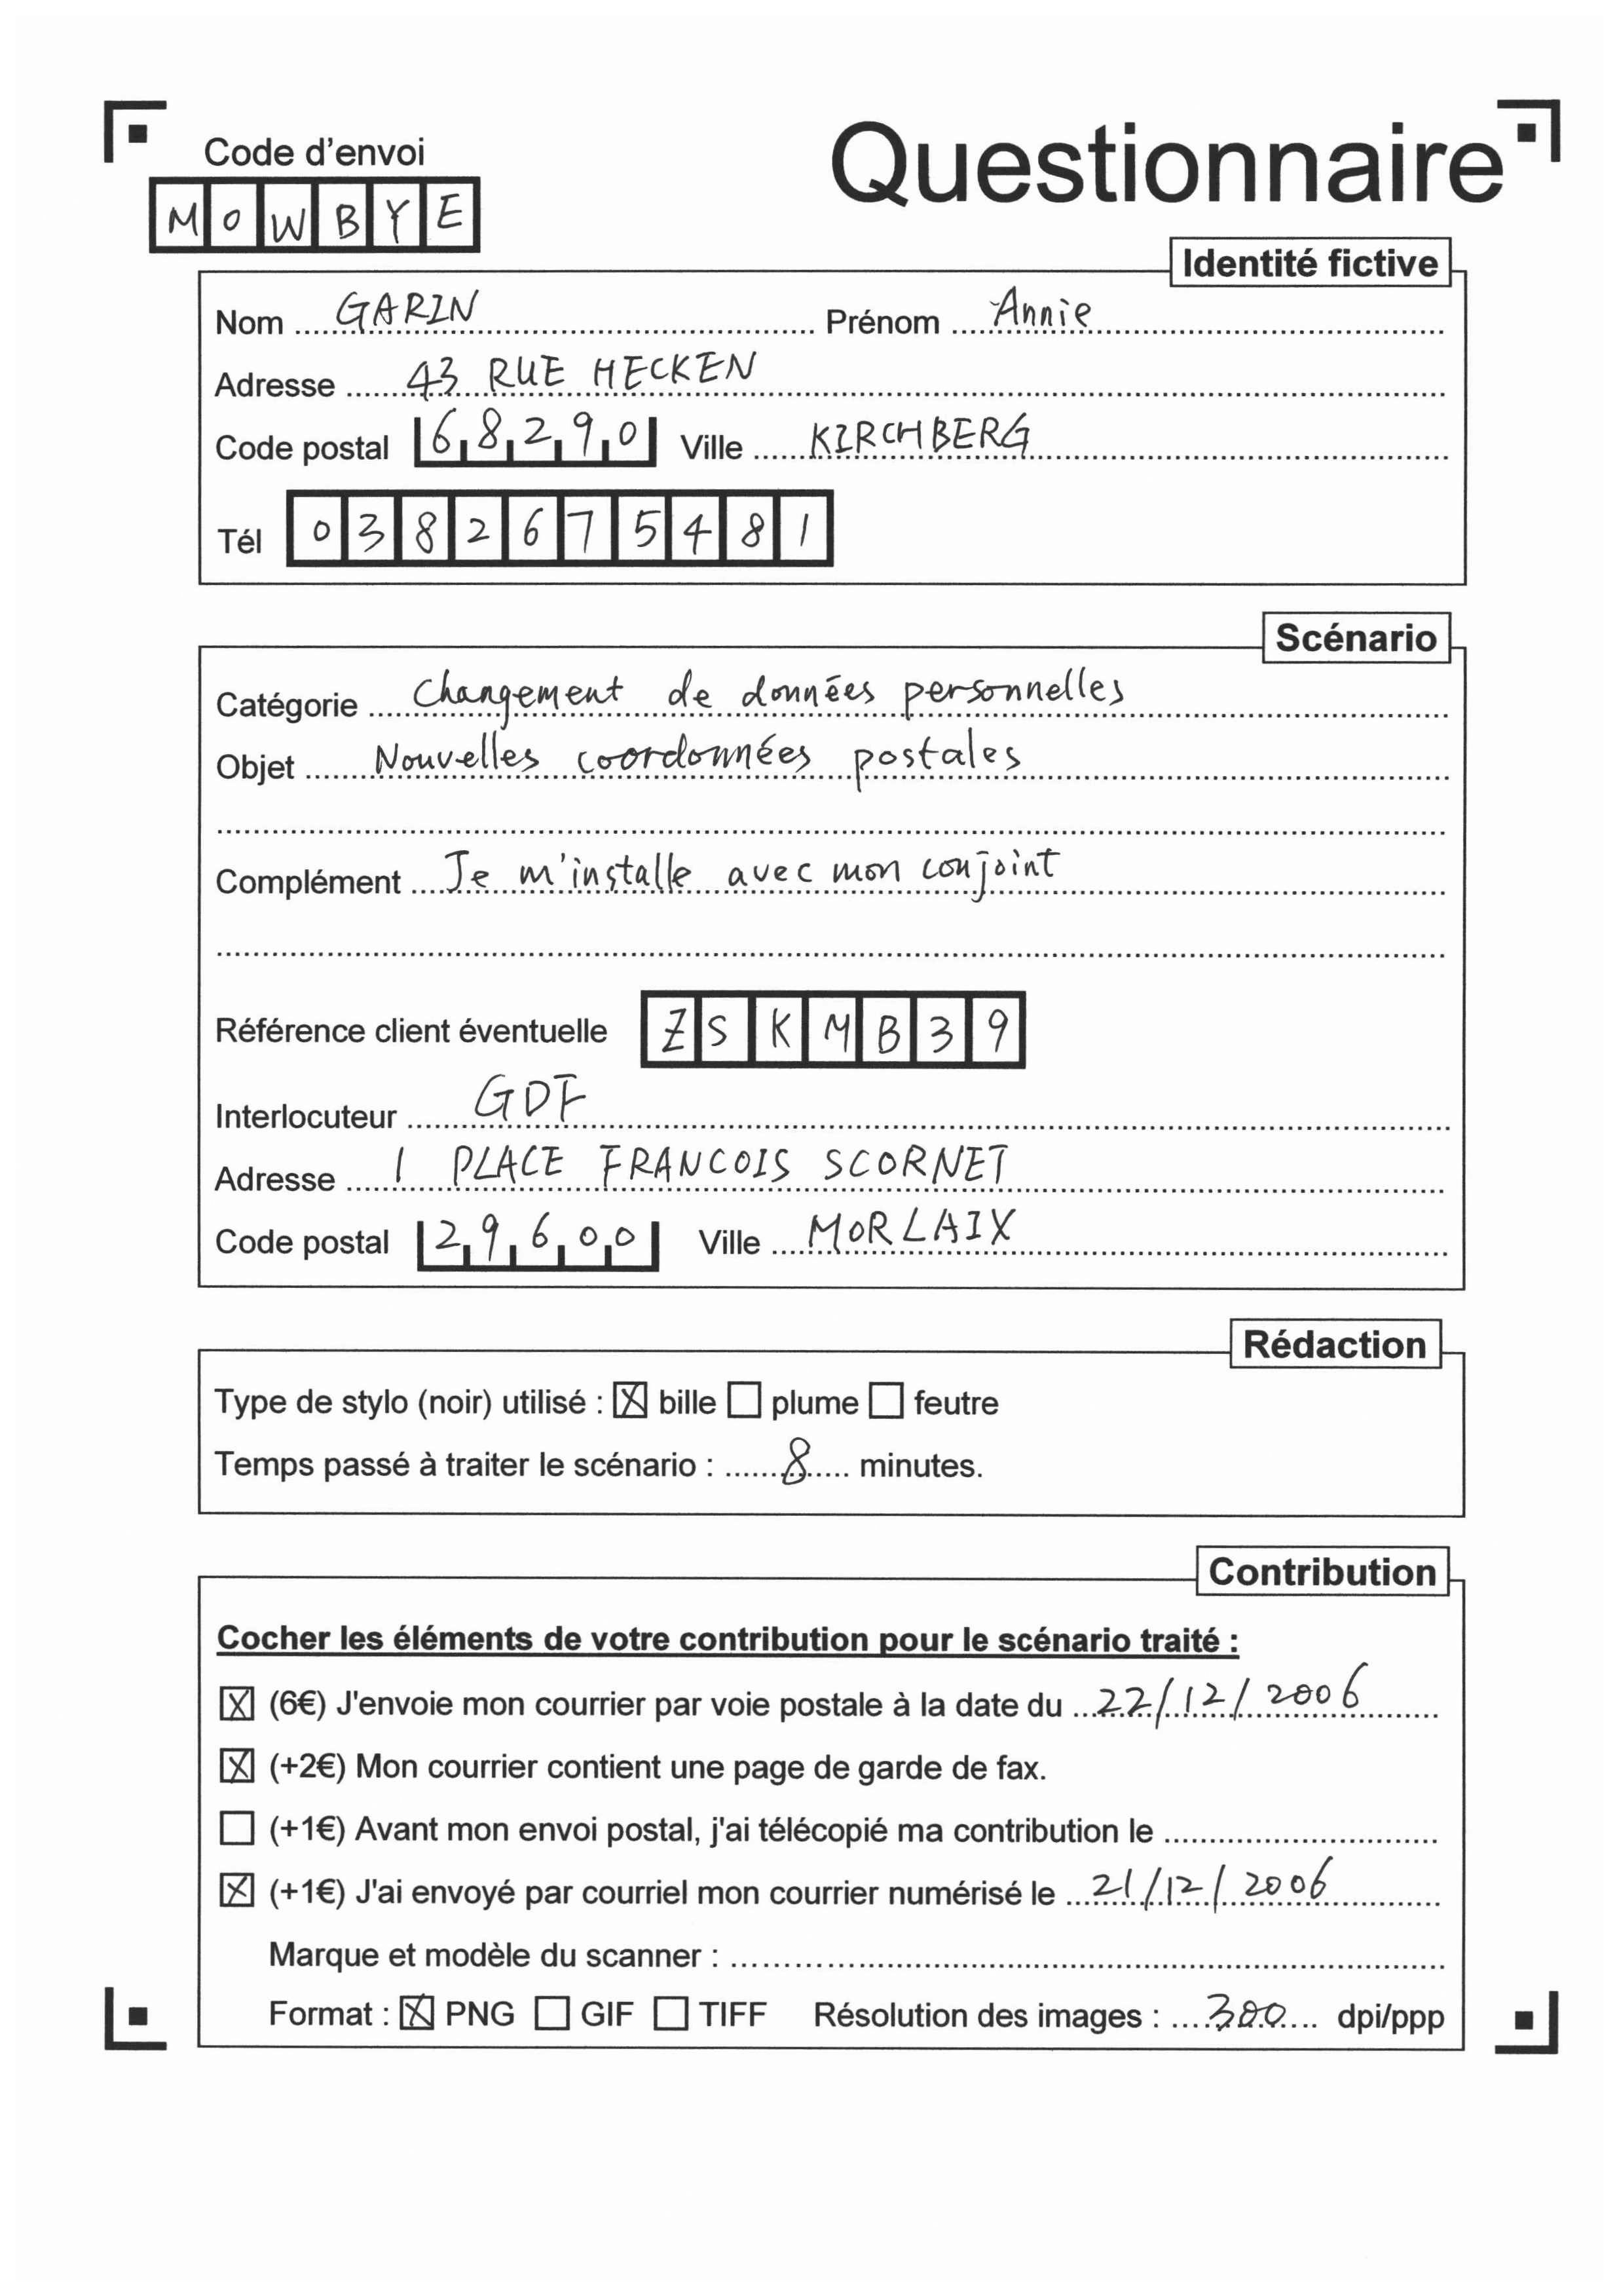 Code d'envoi
Questionnaire
MOWBYE
Identité fictive
Nom GARIN Prénom Annie
Adresse 43 RUE HECKEN
Code postal 68290 Ville KIRCHBERG
Tél 0382675481
Scénario
Catégorie Changement de données personnelles
Objet Nouvelles coordonnées postales
Complément Je m'installe avec mon conjoint
Référence client éventuelle ZSKMB39
Interlocuteur GDF
Adresse 1 PLACE FRANCOIS SCORNET
Code postal 29600 Ville MORLAIX
Rédaction
Type de stylo (noir) utilisé : ☒ bille ☐ plume ☐ feutre
Temps passé à traiter le scénario : 8 minutes.
Contribution
Cocher les éléments de votre contribution pour le scénario traité :
☒ (6€) J'envoie mon courrier par voie postale à la date du 22/12/2006
☒ (+2€) Mon courrier contient une page de garde de fax.
☐ (+1€) Avant mon envoi postal, j'ai télécopié ma contribution le
☒ (+1€) J'ai envoyé par courriel mon courrier numérisé le 21/12/2006
Marque et modèle du scanner :
Format : ☒ PNG ☐ GIF ☐ TIFF Résolution des images : 300 dpi/ppp